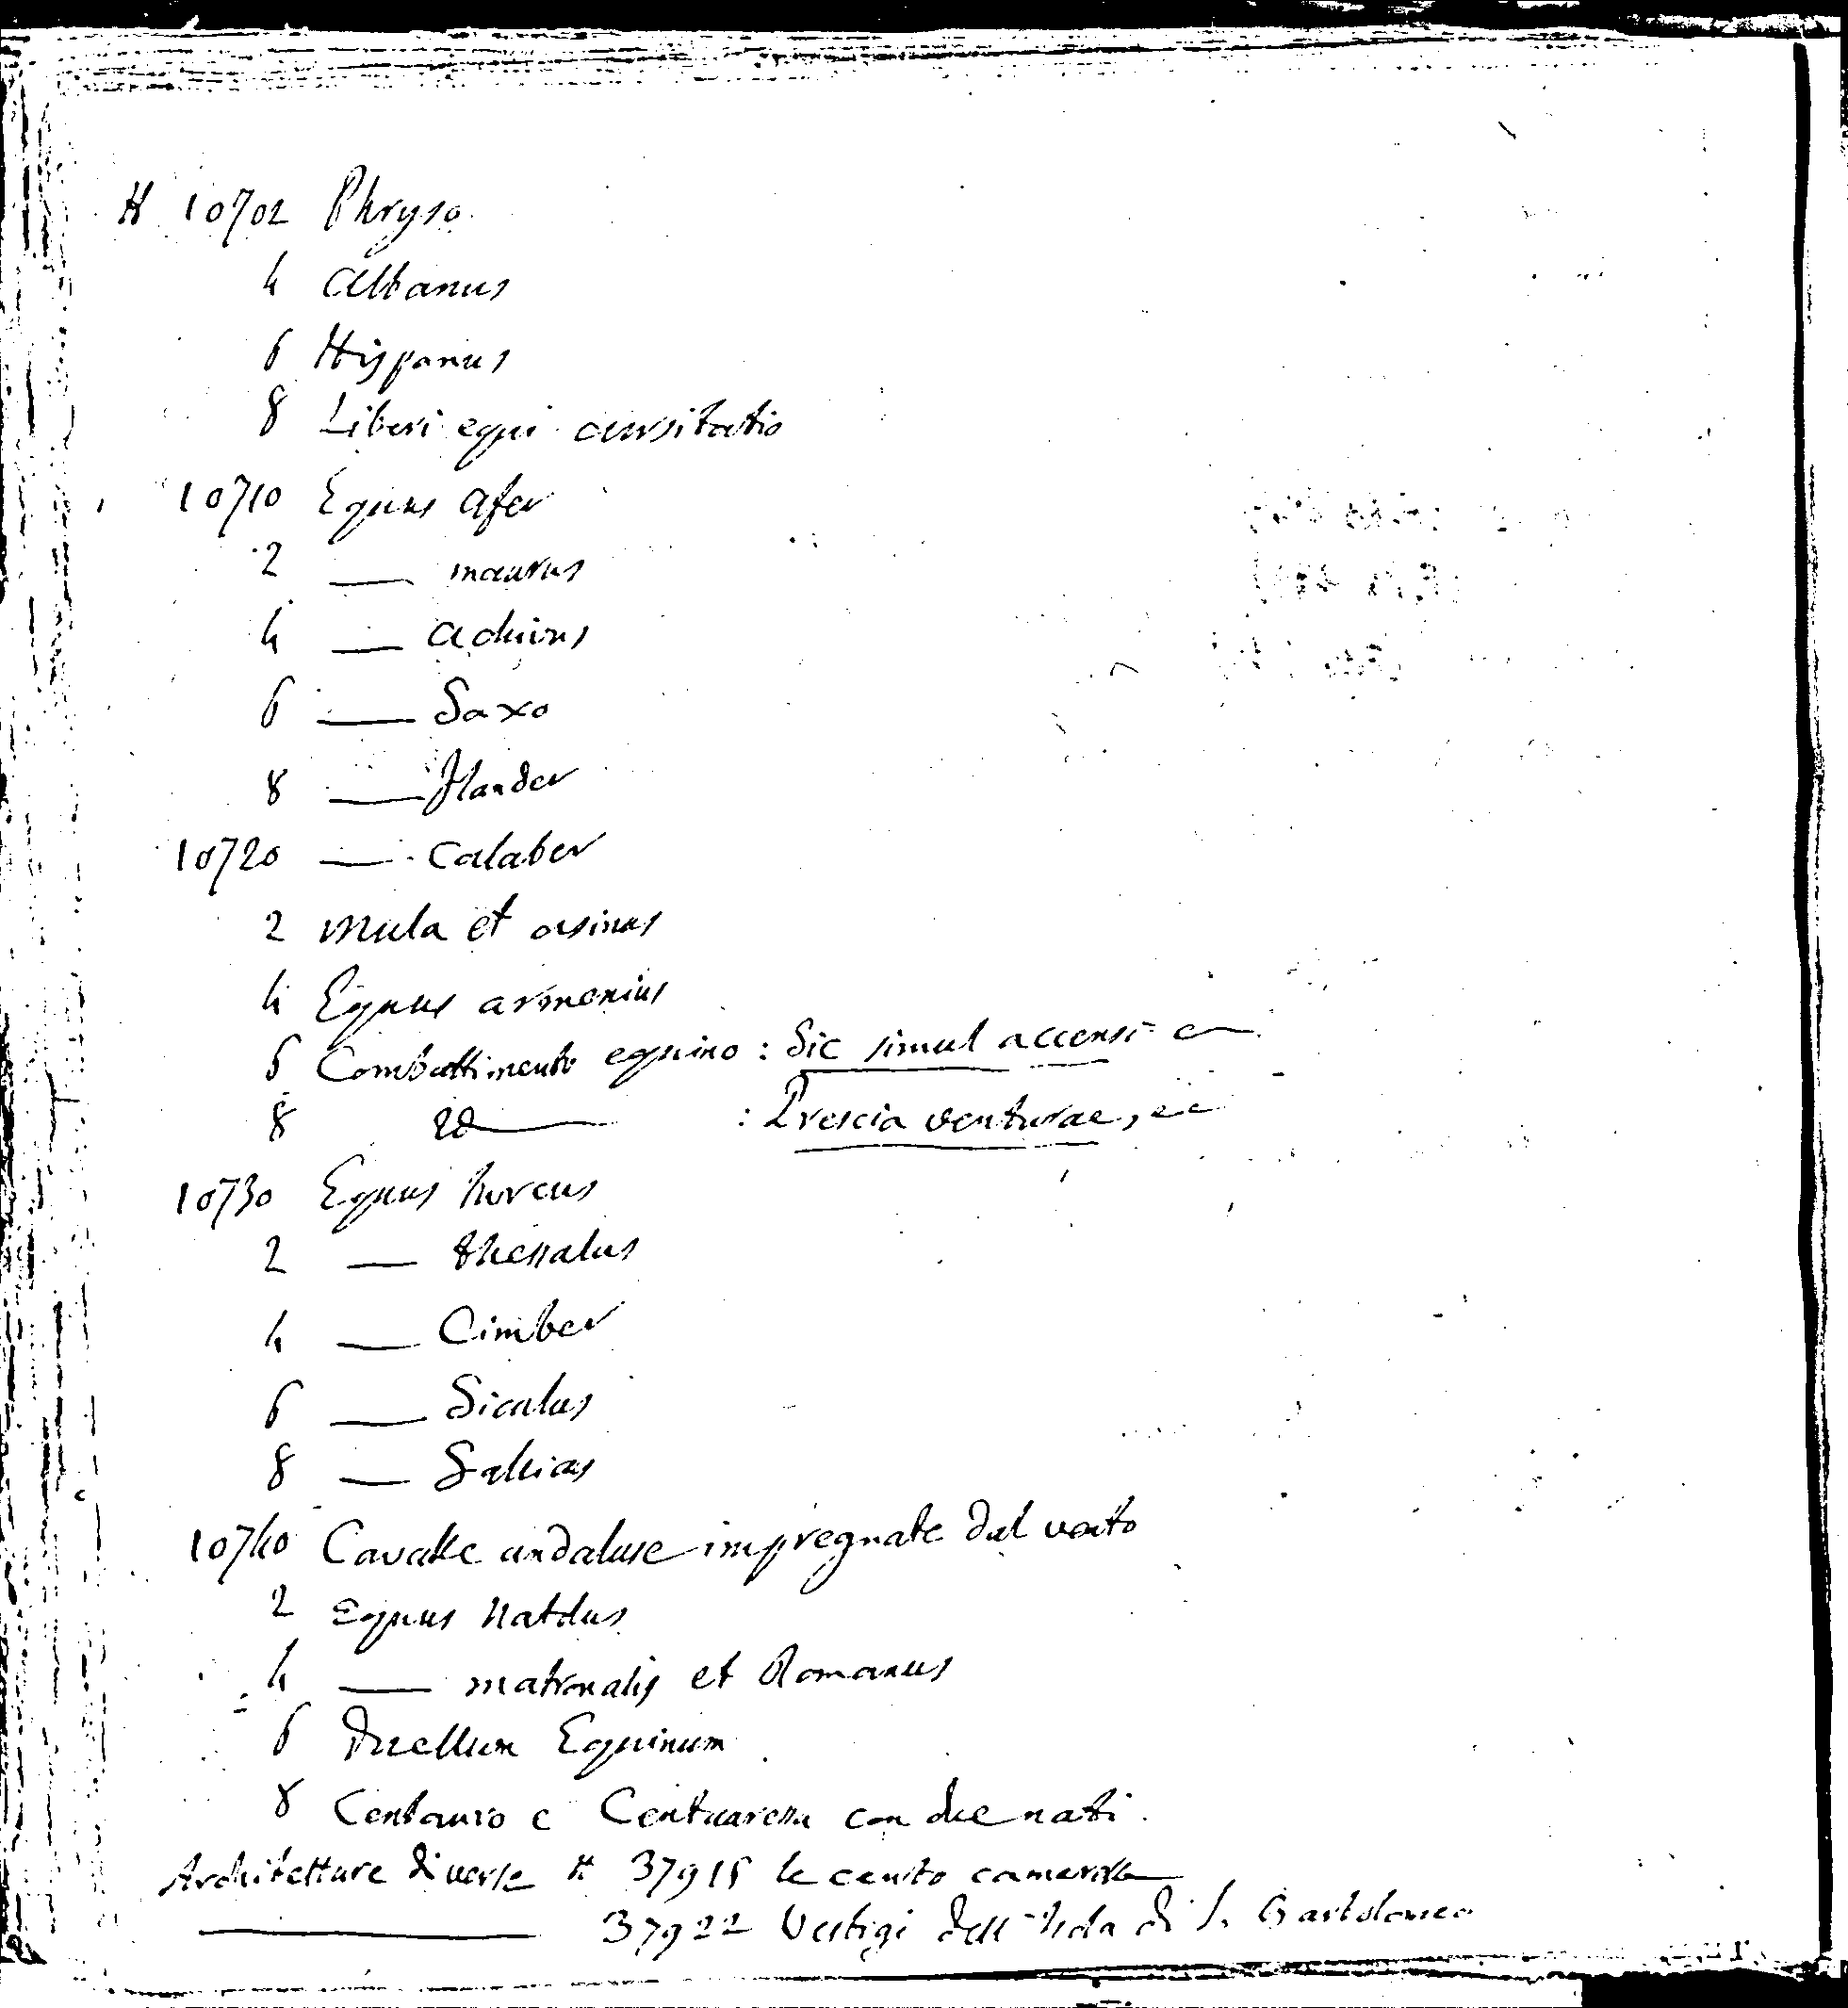 H 10702 Phryso
4 Albanus
6 Hispanus
8 Liberi equi cursitatio
10710 Equus Afer
2 — maurus
4 — Achivus
6 — Saxo
8 — Flander
10720 — Calaber
2 Mula et asinus
4 Equus armenius
6 Combattimento equino: Sic simul accensi
8 id — : Prescia venturae, ec
10730 Equus turcus
2 — thessalus
4 — Cimber
6 — Siculus
8 — Gallicus
10740 Cavalle andaluse impregnate dal vento
2 Equus
4 — matronalis et Romanus
6 Duellum Equinum
8 Centauro e Centuaressa con due nati.
Architetture diverse H 37915 le cento camerelle
— 37922 Vestigi dell'Isola di S. Bartolomeo